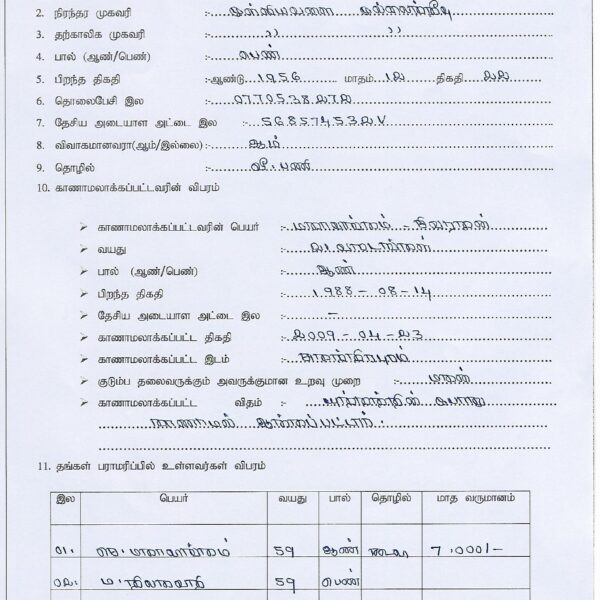 2. நிரந்தர முகவரி :- முள்ளியவளை முல்லைத்தீவு
3. தற்காலிக முகவரி :- ,, ,,
4. பால் (ஆண்/பெண்) :- பெண்
5. பிறந்த திகதி :- ஆண்டு 1956 மாதம் 12 திகதி 22
6. தொலைபேசி இல :- 0770538272
7. தேசிய அடையாள அட்டை இல :- 568574532V
8. விவாகமானவரா(ஆம்/இல்லை) :- ஆம்
9. தொழில் :- வீ. பணி
10. காணாமலாக்கப்பட்டவரின் விபரம்
➢ காணாமலாக்கப்பட்டவரின் பெயர் :-
➢ வயது :-
➢ பால் (ஆண்/பெண்) :- ஆண்
➢ பிறந்த திகதி :- 1988 - 08 - 14
➢ தேசிய அடையாள அட்டை இல :- –
➢ காணாமலாக்கப்பட்ட திகதி :- 2009 - 04 - 23
➢ காணாமலாக்கப்பட்ட இடம் :-
➢ குடும்ப தலைவருக்கும் அவருக்குமான உறவு முறை :- மகன்
➢ காணாமலாக்கப்பட்ட விதம் :- யுத்தத்தின் போது
காணாமல் ஆக்கப்பட்டார்.
11. தங்கள் பராமரிப்பில் உள்ளவர்கள் விபரம்
இல பெயர் வயது பால் தொழில் மாத வருமானம்
01. 59 ஆண் கடை 7.000/-
02. 59 பெண்